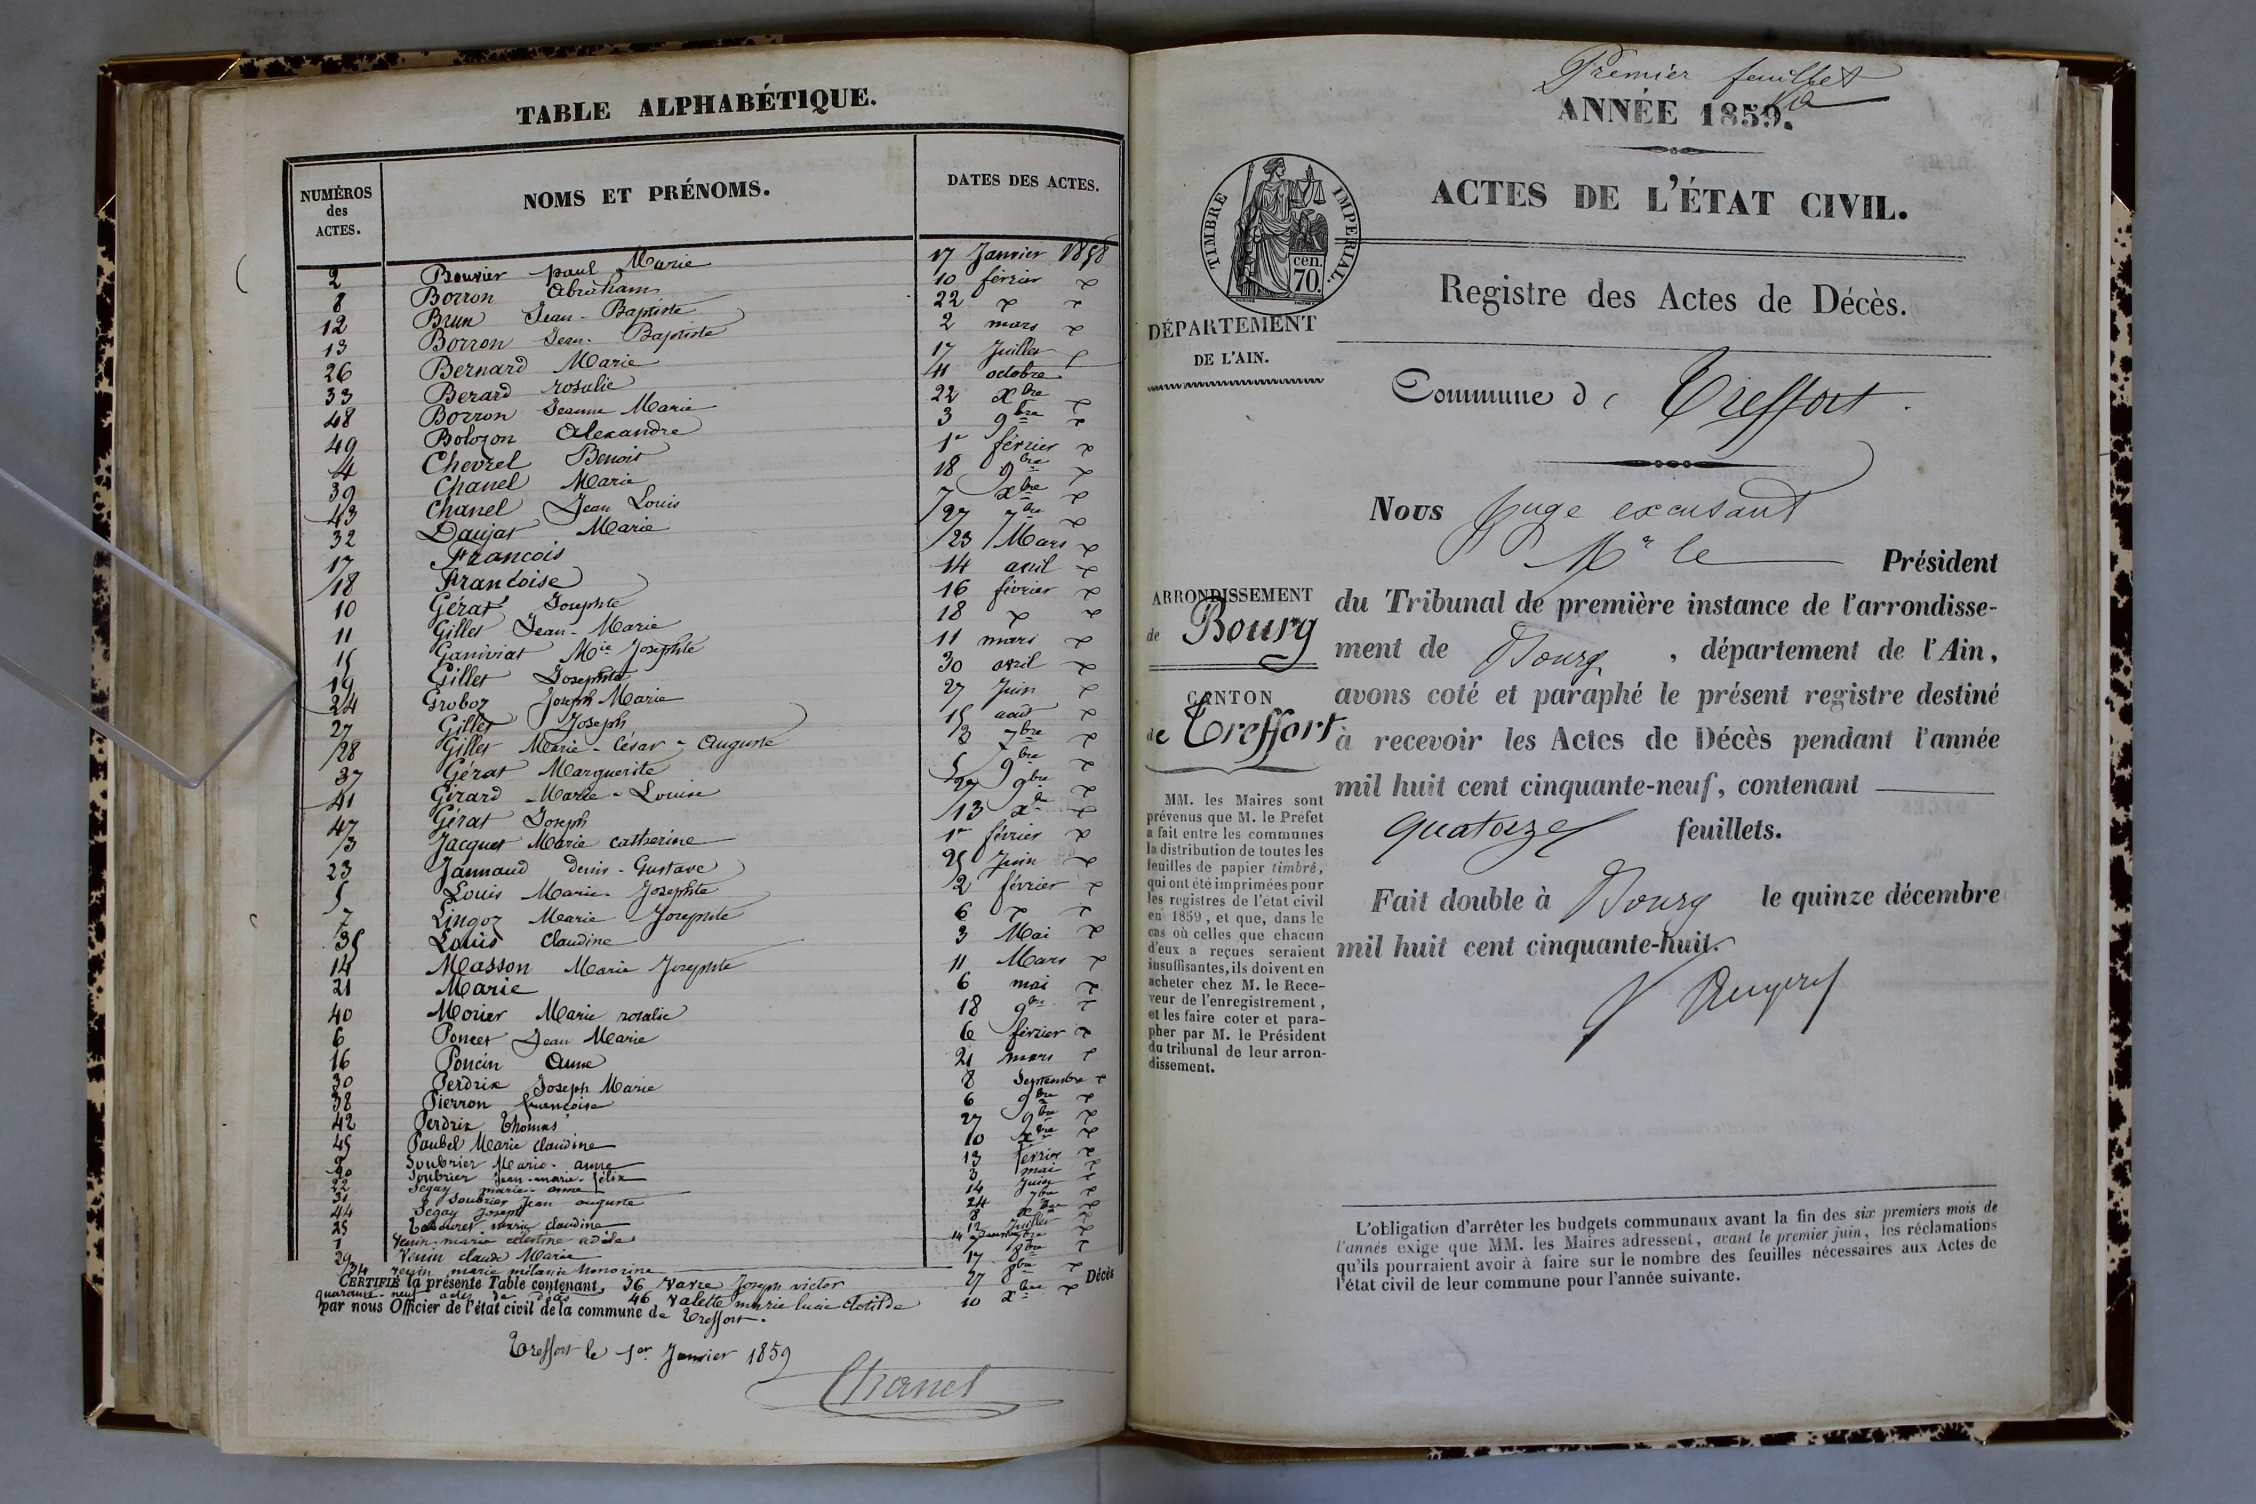 TABLE ALPHABÉTIQUE.
NUMÉROS des ACTES.
NOMS ET PRÉNOMS.
DATES DES ACTES.
2 Bouvier paul Marie 17 Janvier 1858
8 Borron Abraham 10 février
12 Brun Jean-Baptiste 22
13 Borron Jean-Baptiste 2 mars
26 Bernard Marie 17 Juillet
33 Berard rosalie 11 octobre
48 Borron Jeanne Marie 22 xbre
49 Bolozon Alexandre 3 9bre
4 Chevrel Benoit 1er février
39 Chanel Marie 18 9bre
43 Chanel Jean Louis 7 xbre
32 Daujat Marie 27 7bre
17 François 23 Mars
18 Françoise 14 avril
10 Gérat Josephte 16 février
11 Gillet Jean-Marie 18
15 Ganiviat Mie Josephte 11 mars
19 Gillet Josephte 30 avril
24 Groboz Joseph Marie 27 Juin
27 Gillet Joseph 15 aout
28 Gillet Marie-César-Auguste 3 7bre
37 Gérat Marguerite 5 9bre
41 Girard Marie-Louise 27 9bre
47 Gérat Joseph 13 xbre
3 Jacquet Marie catherine 1er février
23 Jannaud Denis-Gustave 25 Juin
5 Louis Marie-Josephte 2 février
7 Lingoz Marie Josephte 6
35 Louis Claudine 3 Mai
14 Masson Marie Josephte 11 Mars
21 Marie 6 mai
40 Morier Marie rosalie 18 9bre
6 Poncet Jean Marie 6 février
16 Poncin Anne 21 mars
30 Perdrix Joseph Marie 8 Septembre
38 Pierron françoise 6 9bre
42 Perdrix Thomas 27 9bre
45 Paubel Marie claudine 10 xbre
9 Soubrier Marie-anne 13 février
20 Soubrier Jean-marie-félix 3 mai
22 Segay marie-anne 14 Juin
31 Soubrier Jean auguste 24 7bre
44 Segay Joseph 8 xbre
25 marie claudine 12 Juillet
1 Venin-marie célestine adèle 14
29 Venin claude Marie 7 7bre
34 Venin marie mélanie honorine 17 8bre
CERTIFIÉ la présente Table contenant 36 Varre Joseph victor 27 8bre Décès
quarante-neuf actes de décès 46 Valette marie lucie clotilde 10 xbre
par nous Officier de l'état civil de la commune de Treffort.
Treffort le 1er Janvier 1859
Chanel
Premier feuillet
ANNÉE 1859.
TIMBRE IMPÉRIAL.
cen. 70.
ACTES DE L'ÉTAT CIVIL.
Registre des Actes de Décès.
DÉPARTEMENT
DE L'AIN.
Commune de Treffort.
Nous Juge excusant
Mr le Président
ARRONDISSEMENT
de Bourg
du Tribunal de première instance de l'arrondisse-
ment de Bourg, département de l'Ain,
avons coté et paraphé le présent registre destiné
CANTON
de Treffort
à recevoir les Actes de Décès pendant l'année
mil huit cent cinquante-neuf, contenant
quatorze feuillets.
Fait double à Bourg le quinze décembre
mil huit cent cinquante-huit.
MM. les Maires sont
prévenus que M. le Préfet
a fait entre les communes
la distribution de toutes les
feuilles de papier timbré,
qui ont été imprimées pour
les registres de l'état civil
en 1859, et que, dans le
cas où celles que chacun
d'eux a reçues seraient
insuffisantes, ils doivent en
acheter chez M. le Rece-
veur de l'enregistrement,
et les faire coter et para-
pher par M. le Président
du tribunal de leur arron-
dissement.
L'obligation d'arrêter les budgets communaux avant la fin des six premiers mois de
l'année exige que MM. les Maires adressent, avant le premier juin, les réclamations
qu'ils pourraient avoir à faire sur le nombre des feuilles nécessaires aux Actes de
l'état civil de leur commune pour l'année suivante.